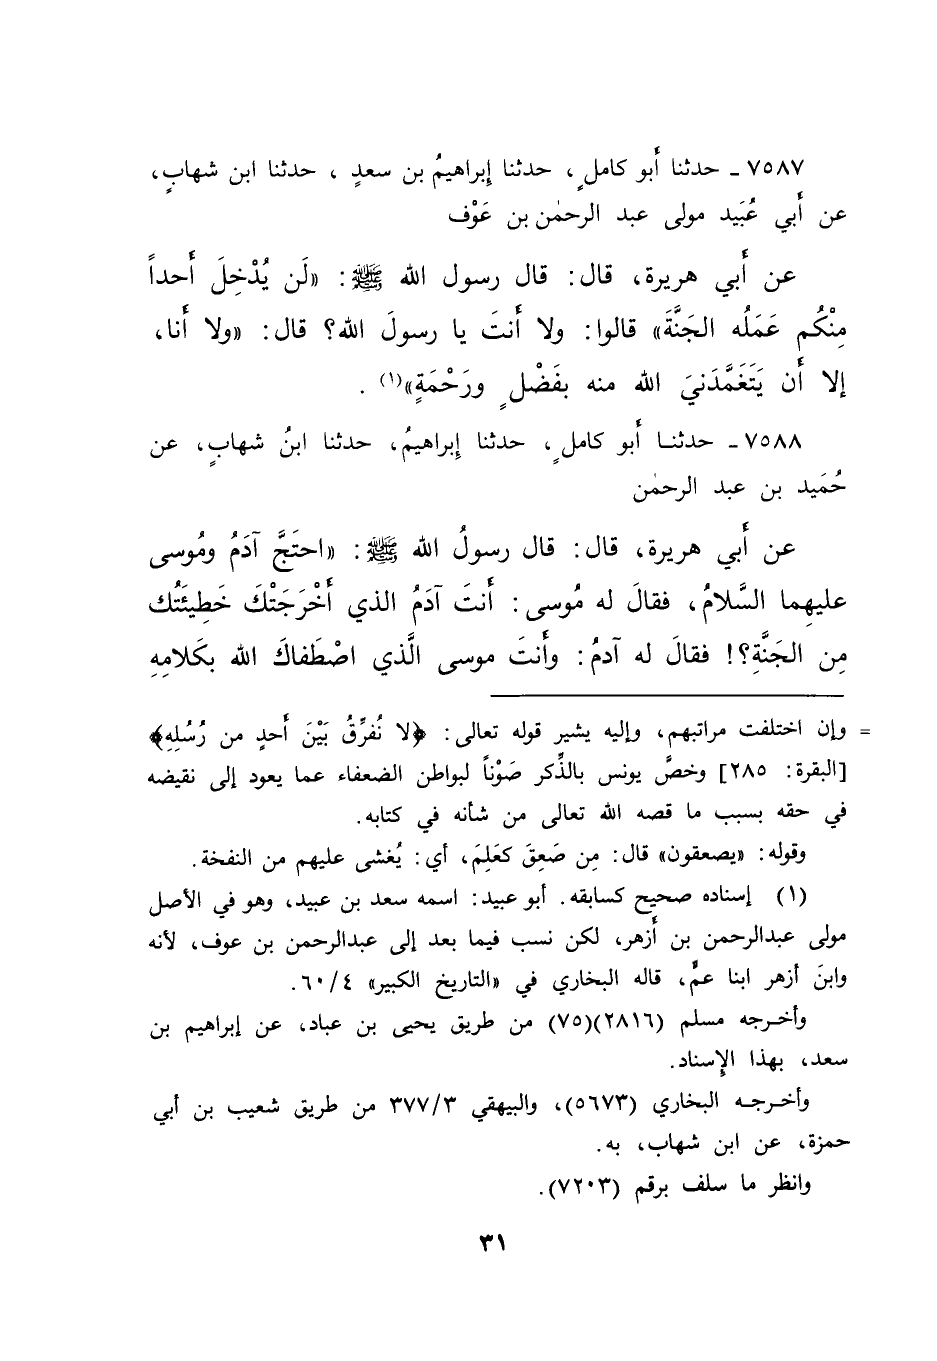 ٧٥٨٧ ـ حدثنا أَبو كاملٍ، حدثنا إِبراهيمُ بن سعدٍ ، حدثنا ابن شهابٍ،
عن أَبي عُبَيد مولى عبد الرحمٰن بن عَوْف
عن أَبي هريرة، قال: قال رسول الله ﷺ: «لَن يُدْخِلَ أَحداً
مِنْكُم عَمَلُه الجَنَّةَ» قالوا: ولا أَنتَ يا رسولَ الله؟ قال: «ولا أَنا،
إلا أَن يَتَغَمَّدَنيَ الله منه بفَضْلٍ ورَحْمَةٍ»(١) .
٧٥٨٨ ـ حدثنـا أَبو كاملٍ، حدثنا إِبراهيمُ، حدثنا ابنُ شهابٍ، عن
حُمَيد بن عبد الرحمٰن
عن أَبي هريرة، قال: قال رسولُ الله ﷺ: «احتَجَّ آدَمُ ومُوسى
عليهِما السَّلامُ، فقالَ له مُوسى: أَنتَ آدَمُ الذي أَخْرَجَتْكَ خَطِيئَتُك
مِن الجَنَّةِ؟! فقالَ له آدمُ: وأَنتَ موسى الَّذي اصْطَفاكَ الله بكَلامِهِ
= وإن اختلفت مراتبهم، وإليه يشير قوله تعالى: ﴿لا نُفرِّقُ بَيْنَ أَحدٍ من رُسُلِهِ﴾
[البقرة: ٢٨٥] وخصَّ يونس بالذِّكر صَوْناً لبواطن الضعفاء عما يعود إلى نقيضه
في حقه بسبب ما قصه الله تعالى من شأنه في كتابه.
وقوله: «يصعقون» قال: مِن صَعِقَ كعَلِمَ، أي: يُغشى عليهم من النفخة.
(١) إسناده صحيح كسابقه. أبو عبيد: اسمه سعد بن عبيد، وهو في الأصل
مولى عبدالرحمن بن أَزهر، لكن نسب فيما بعد إلى عبدالرحمن بن عوف، لأنه
وابنَ أزهر ابنا عمٍّ، قاله البخاري في «التاريخ الكبير» ٦٠/٤.
وأخـرجه مسلم (٢٨١٦)(٧٥) من طريق يحيى بن عباد، عن إبراهيم بن
سعد، بهذا الإِسناد.
وأخـرجـه البخاري (٥٦٧٣)، والبيهقي ٣٧٧/٣ من طريق شعيب بن أبي
حمزة، عن ابن شهاب، به.
وانظر ما سلف برقم (٧٢٠٣).
٣١